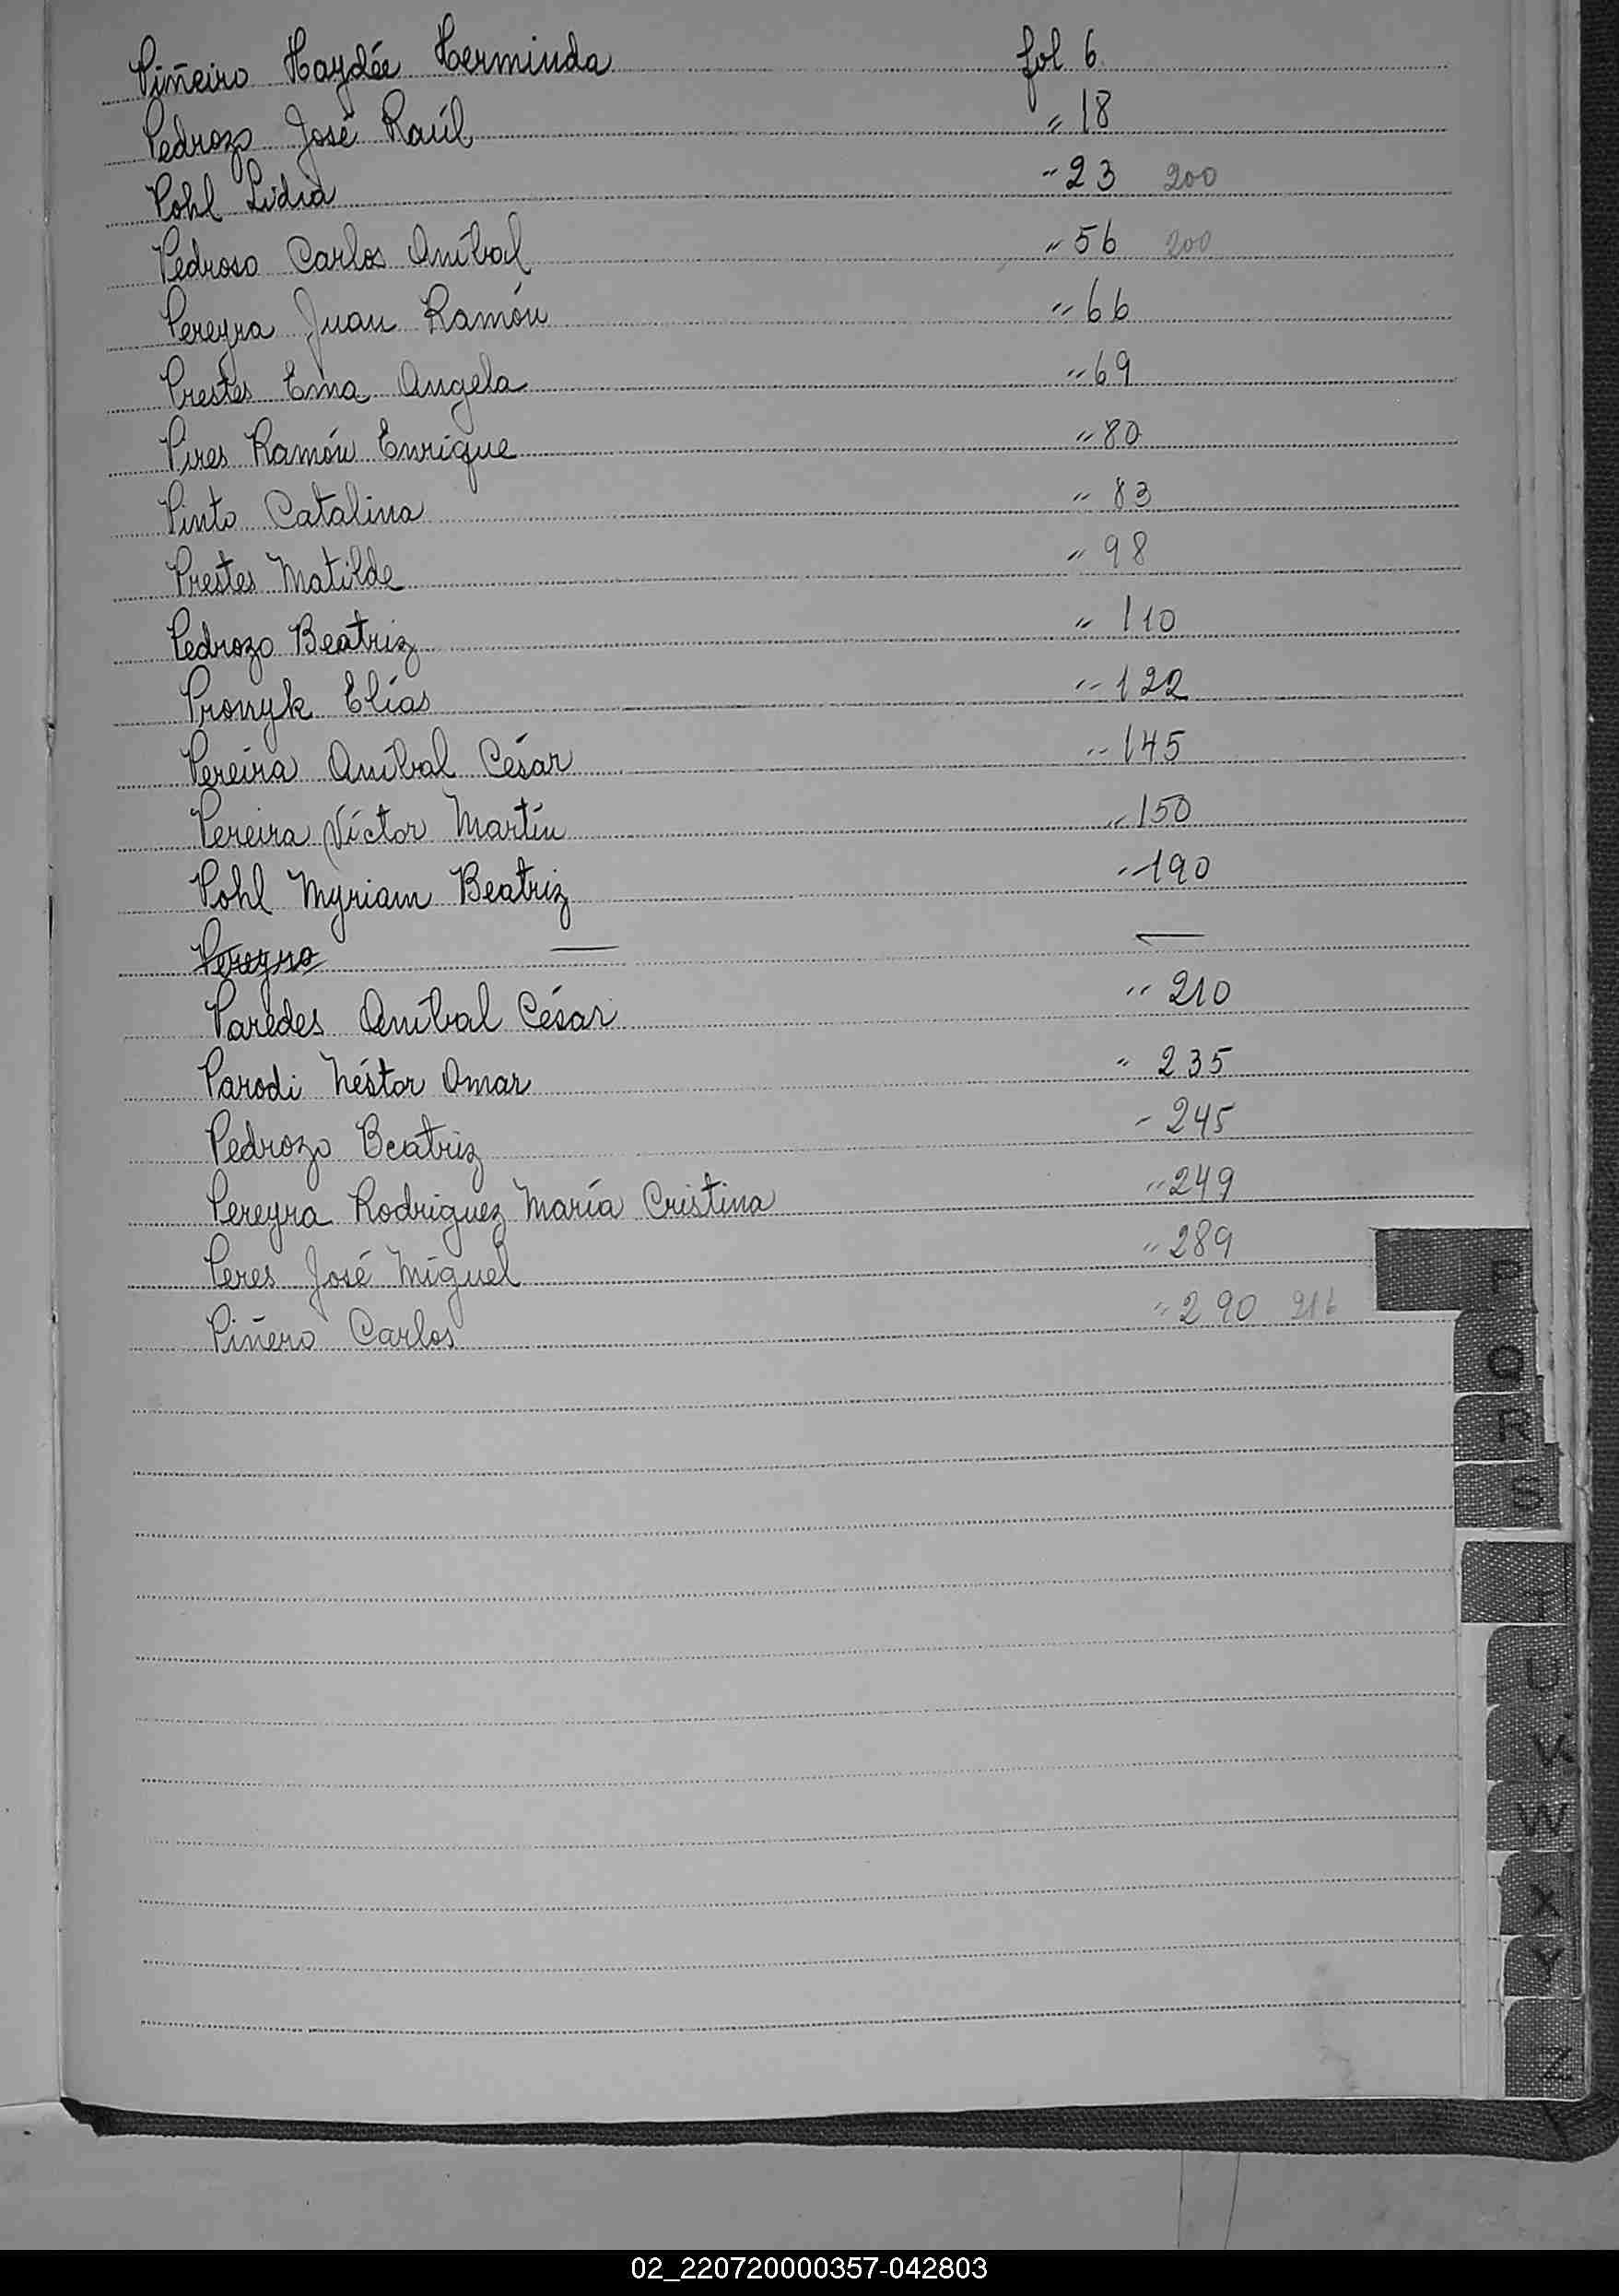 Piñeiro Haydée Herminda fol 6
Pedrozo José Raúl " 18
Pohl Lidia " 23 200
Pedroso Carlos Aníbal " 56 200
Pereyra Juan Ramón " 66
Prestes Ema Angela " 69
Pires Ramón Enrique " 80
Pinto Catalina " 83
Prestes Matilde " 98
Pedrozo Beatriz " 110
Pronyk Elías " 122
Pereira Aníbal César " 145
Pereira Víctor Martín " 150
Pohl Myriam Beatriz " 190
Pereyra — —
Paredes Aníbal César " 210
Parodi Néstor Omar " 235
Pedrozo Beatriz " 245
Pereyra Rodriguez María Cristina " 249
Peres José Miguel " 289
Piñero Carlos " 290 216
P
Q
R
S
T
U
V
W
X
Y
Z
02_220720000357-042803